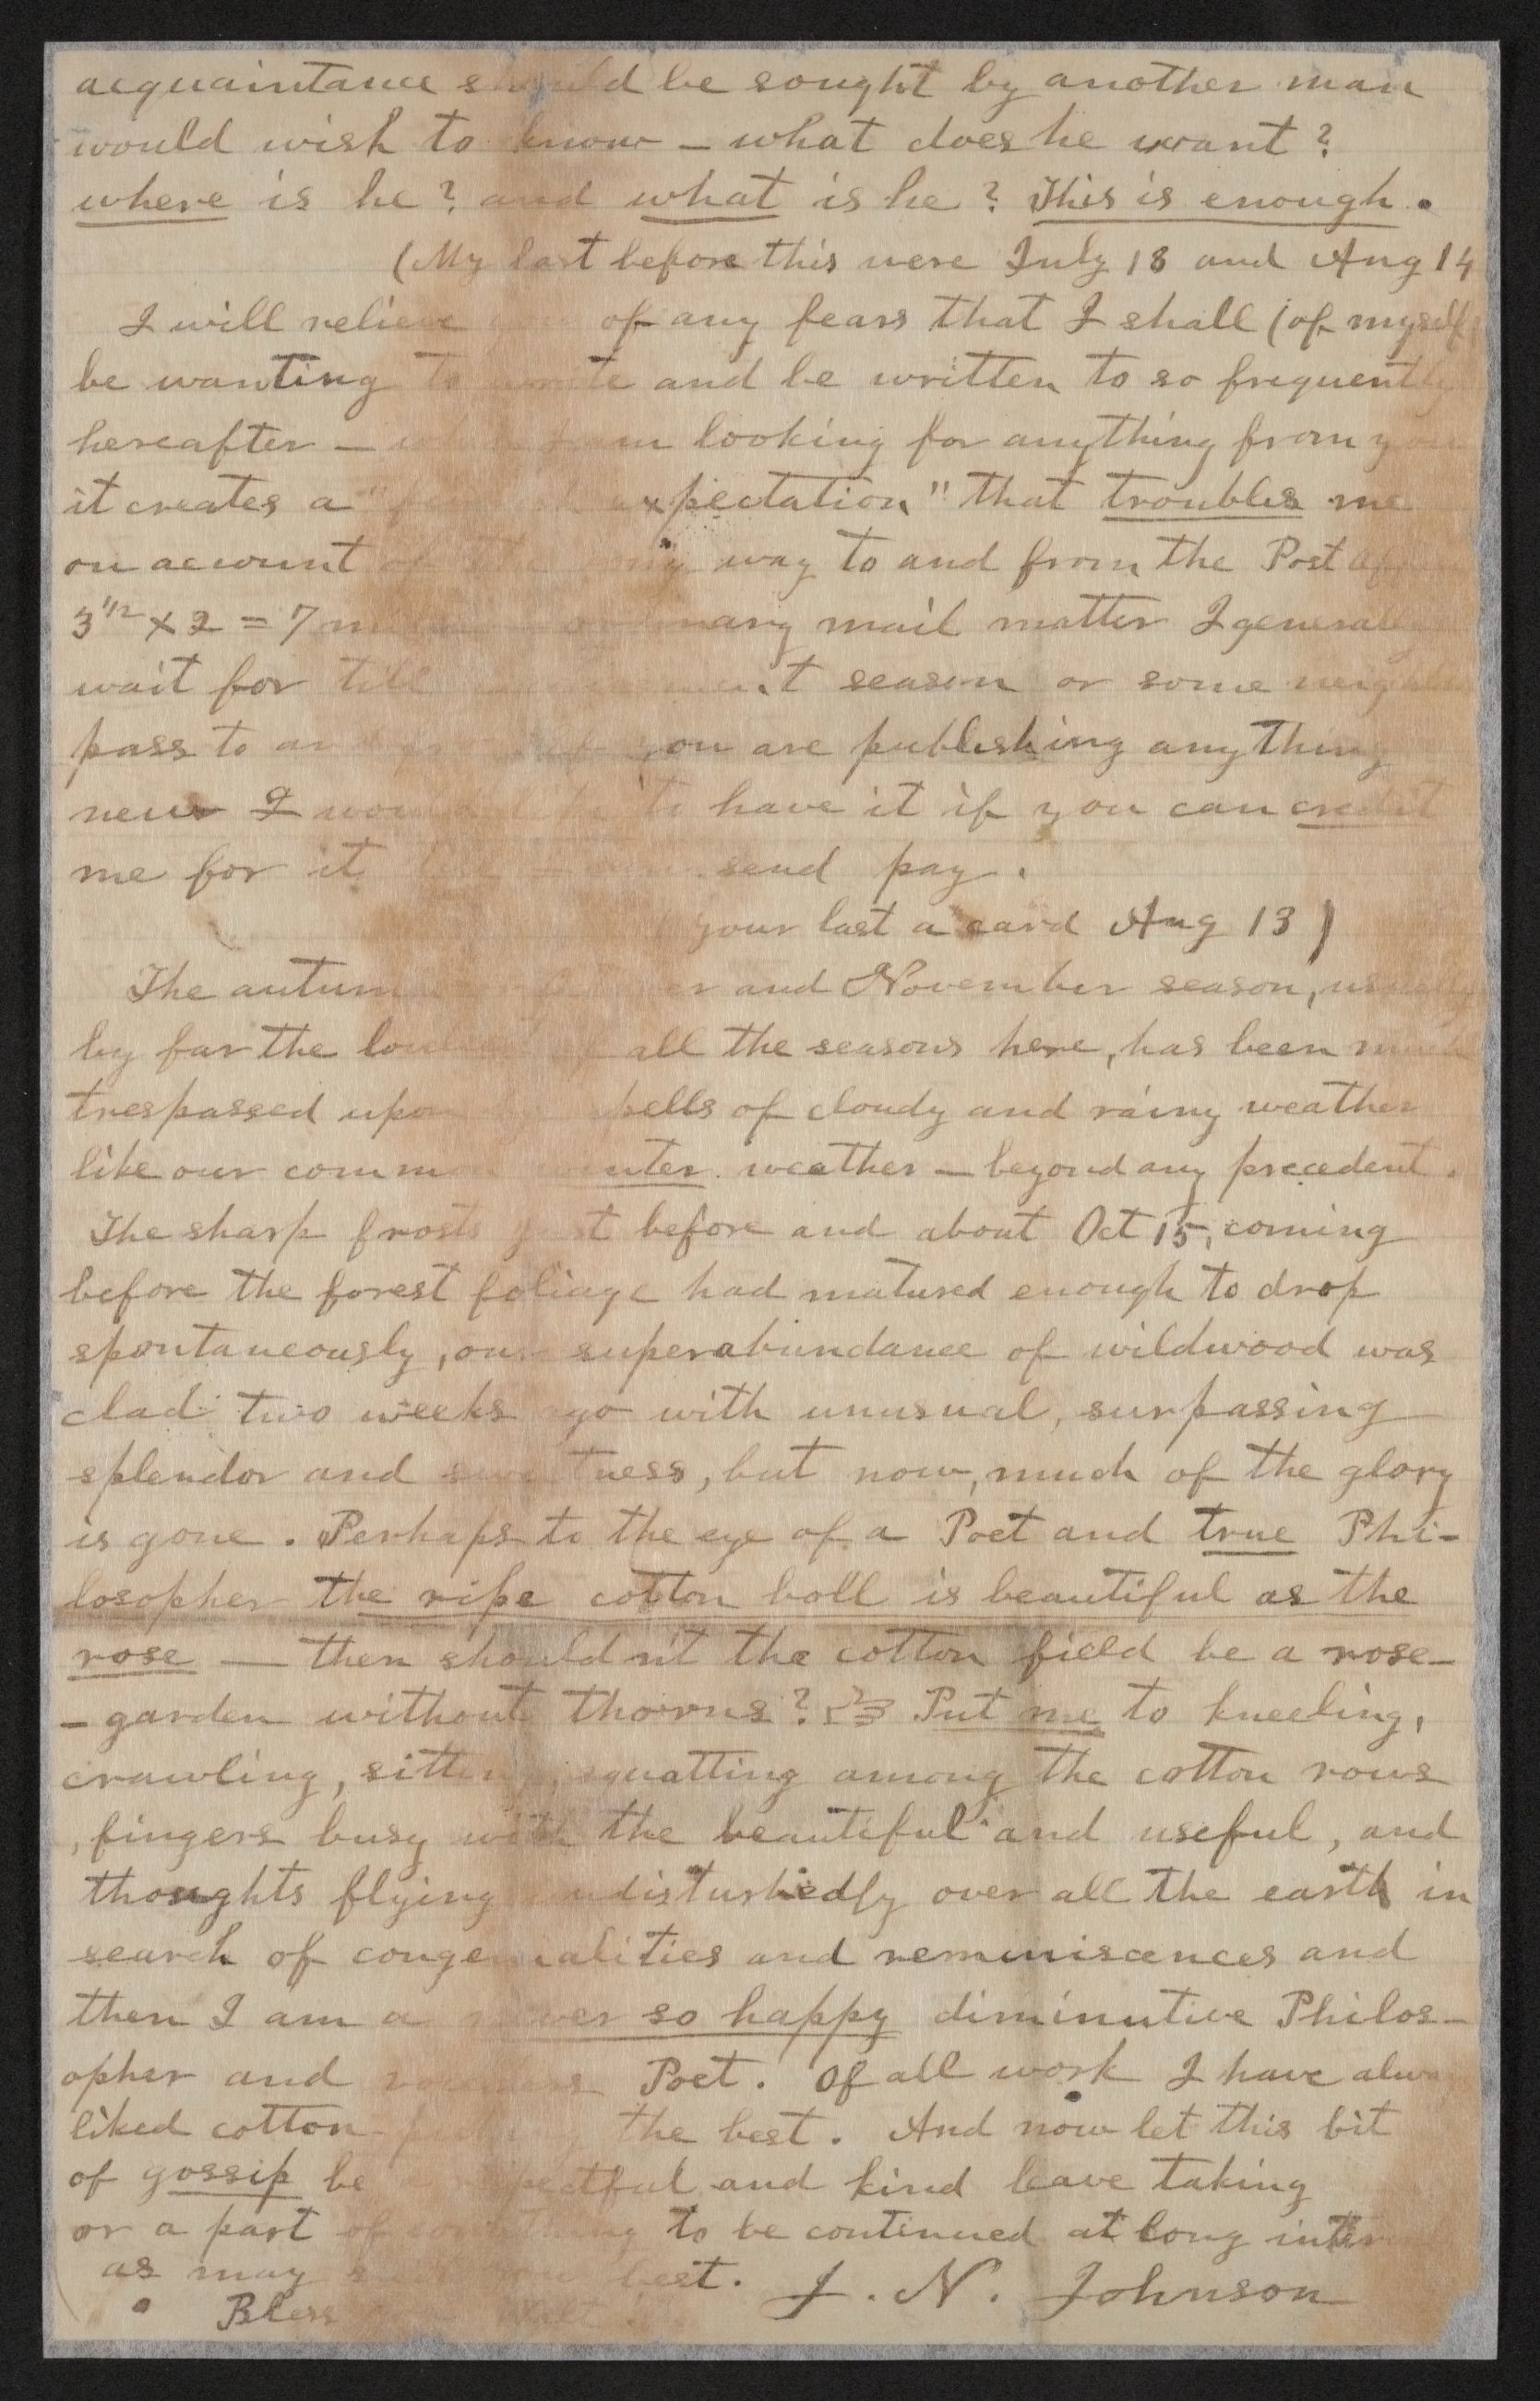 acquaintance should be sought by another man
would wish to know — what does he want?
where is he? and what is he? This is enough.
(My last before this were July 18 and Aug 14
I will relieve you of any fears that I shall (of myself)
be wanting to write and be written to so frequently
hereafter — when I am looking for anything from you
it creates a " expectation" that troubles me
on account of the long way to and from the Post Office
3 1/2 x 2 = 7 ordinary mail matter I generally
wait for till season or some neighbor
pass to and from. If you are publishing anything
new I would like to have it if you can credit
me for it send pay.
(your last a card Aug 13)
The autumn and November season, usually
by far the loveliest of all the seasons here, has been much
trespassed upon by spells of cloudy and rainy weather
like our common winter weather — beyond any precedent.
The sharp frosts just before and about Oct 15, coming
before the forest foliage had matured enough to drop
spontaneously, our superabundance of wildwood was
clad two weeks ago with unusual, surpassing
splendor and sweetness, but now, much of the glory
is gone. Perhaps to the eye of a Poet and true Phi-
losopher the ripe cotton boll is beautiful as the
rose — then shouldn't the cotton field be a rose-
-garden without thorns? ☞ Put me to kneeling,
crawling, sitting, squatting among the cotton rows
, fingers busy with the beautiful and useful, and
thoughts flying undisturbedly over all the earth in
search of congenialities and reminiscences and
then I am a never so happy diminutive Philos-
opher and Poet. Of all work I have always
liked cotton-picking the best. And now let this bit
of gossip be respectful and kind leave taking
or a part of something to be continued at long
as may best. J. N. Johnson
Bless